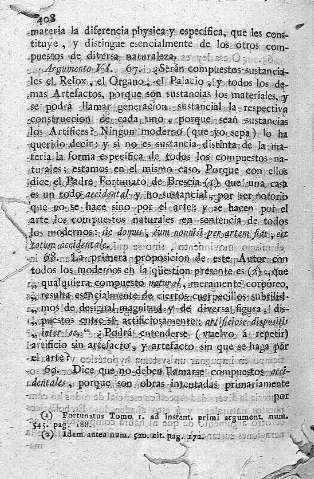 408
materia la diferencia physica y especifica, que les cons-
tituye, y distingue esencialmente de los otros com-
puestos de diversa naturaleza.
Argumento VI. 67. ¿Serán compuestos sustancia-
les el Relox, el Organo, el Palacio, y todos los de-
mas Artefactos, porque son sustancias los materiales, y
se podrá llamar generacion sustancial la respectiva
construccion de cada uno, porque sean sustancias
los Artifices? Ningun moderno (que yo sepa) lo ha
querido decir; y si no es sustancia distinta de la ma-
teria la forma especifica de todos los compuestos na-
turales; estamos en el mismo caso. Porque con ellos
dice el Padre Fortunato de Brescia (1) que una casa
es un todo accidental y no sustancial, por ser notorio
que no se hace sino por el arte: y se hacen por el
arte los compuestos naturales en sentencia de todos
los modernos: sic domus, cum nonnisi per artem fiat, est
totum accidentale.
68. La primera proposicion de este Autor con
todos los modernos en la qüestion presente es (2), que
qualquiera compuesto natural, meramente corpóreo,
resulta esencialmente de ciertos cuerpecillos subtilisi-
mos de desigual magnitud y de diversa figura, dis-
puestos entre sí artificiosamente: artificiose dispositis
inter se. ¿Podrá entenderse (vuelvo á repetir)
artificio sin artefacto, y artefacto sin que se haga por
el arte?
69. Dice que no deben llamarse compuestos acci-
dentales, porque son obras intentadas primariamente
por
(1) Fortunatus Tomo 1. ad instant. primi argument. num.
545. pag. 188.
(2) Idem antea num. 520. cit. pag. 172.